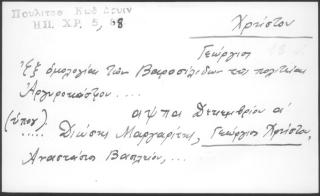 Πουλίτσα Κωδ Δρυιν
ΗΠ. ΧΡ. 5, 68
Χρήστου
Γεώργιος
Ἐξ ὁμολογίας τῶν Βαροσλίδων τῆς πολιτείας
Ἀργυροκάστρου....
αψπα Δεκεμβρίου αʹ
(ὑπογ.) ..... Διώσης Μαργαρίτης, Γεώργιος Χρήστου,
Ἀναστάσιος Βασιλείου, ...